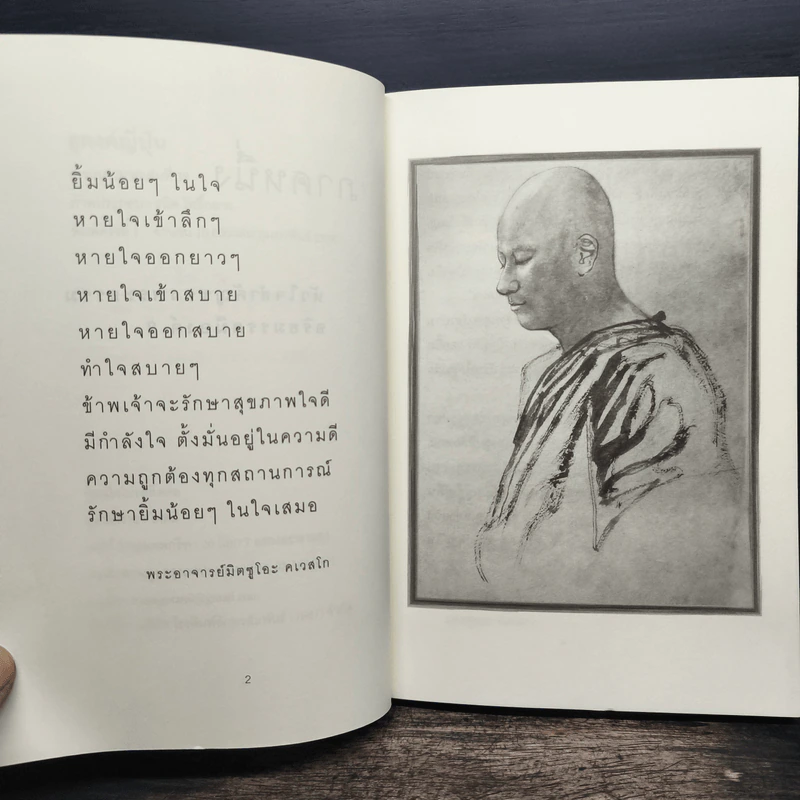 ยิ้มน้อยๆ ในใจ
หายใจเข้าลึกๆ
หายใจออกยาวๆ
หายใจเข้าสบาย
หายใจออกสบาย
ทำใจสบายๆ
ข้าพเจ้าจะรักษาสุขภาพใจดี
มีกำลังใจ ตั้งมั่นอยู่ในความดี
ความถูกต้องทุกสถานการณ์
รักษายิ้มน้อยๆ ในใจเสมอ
พระอาจารย์มิตซูโอะ คเวสโก
2